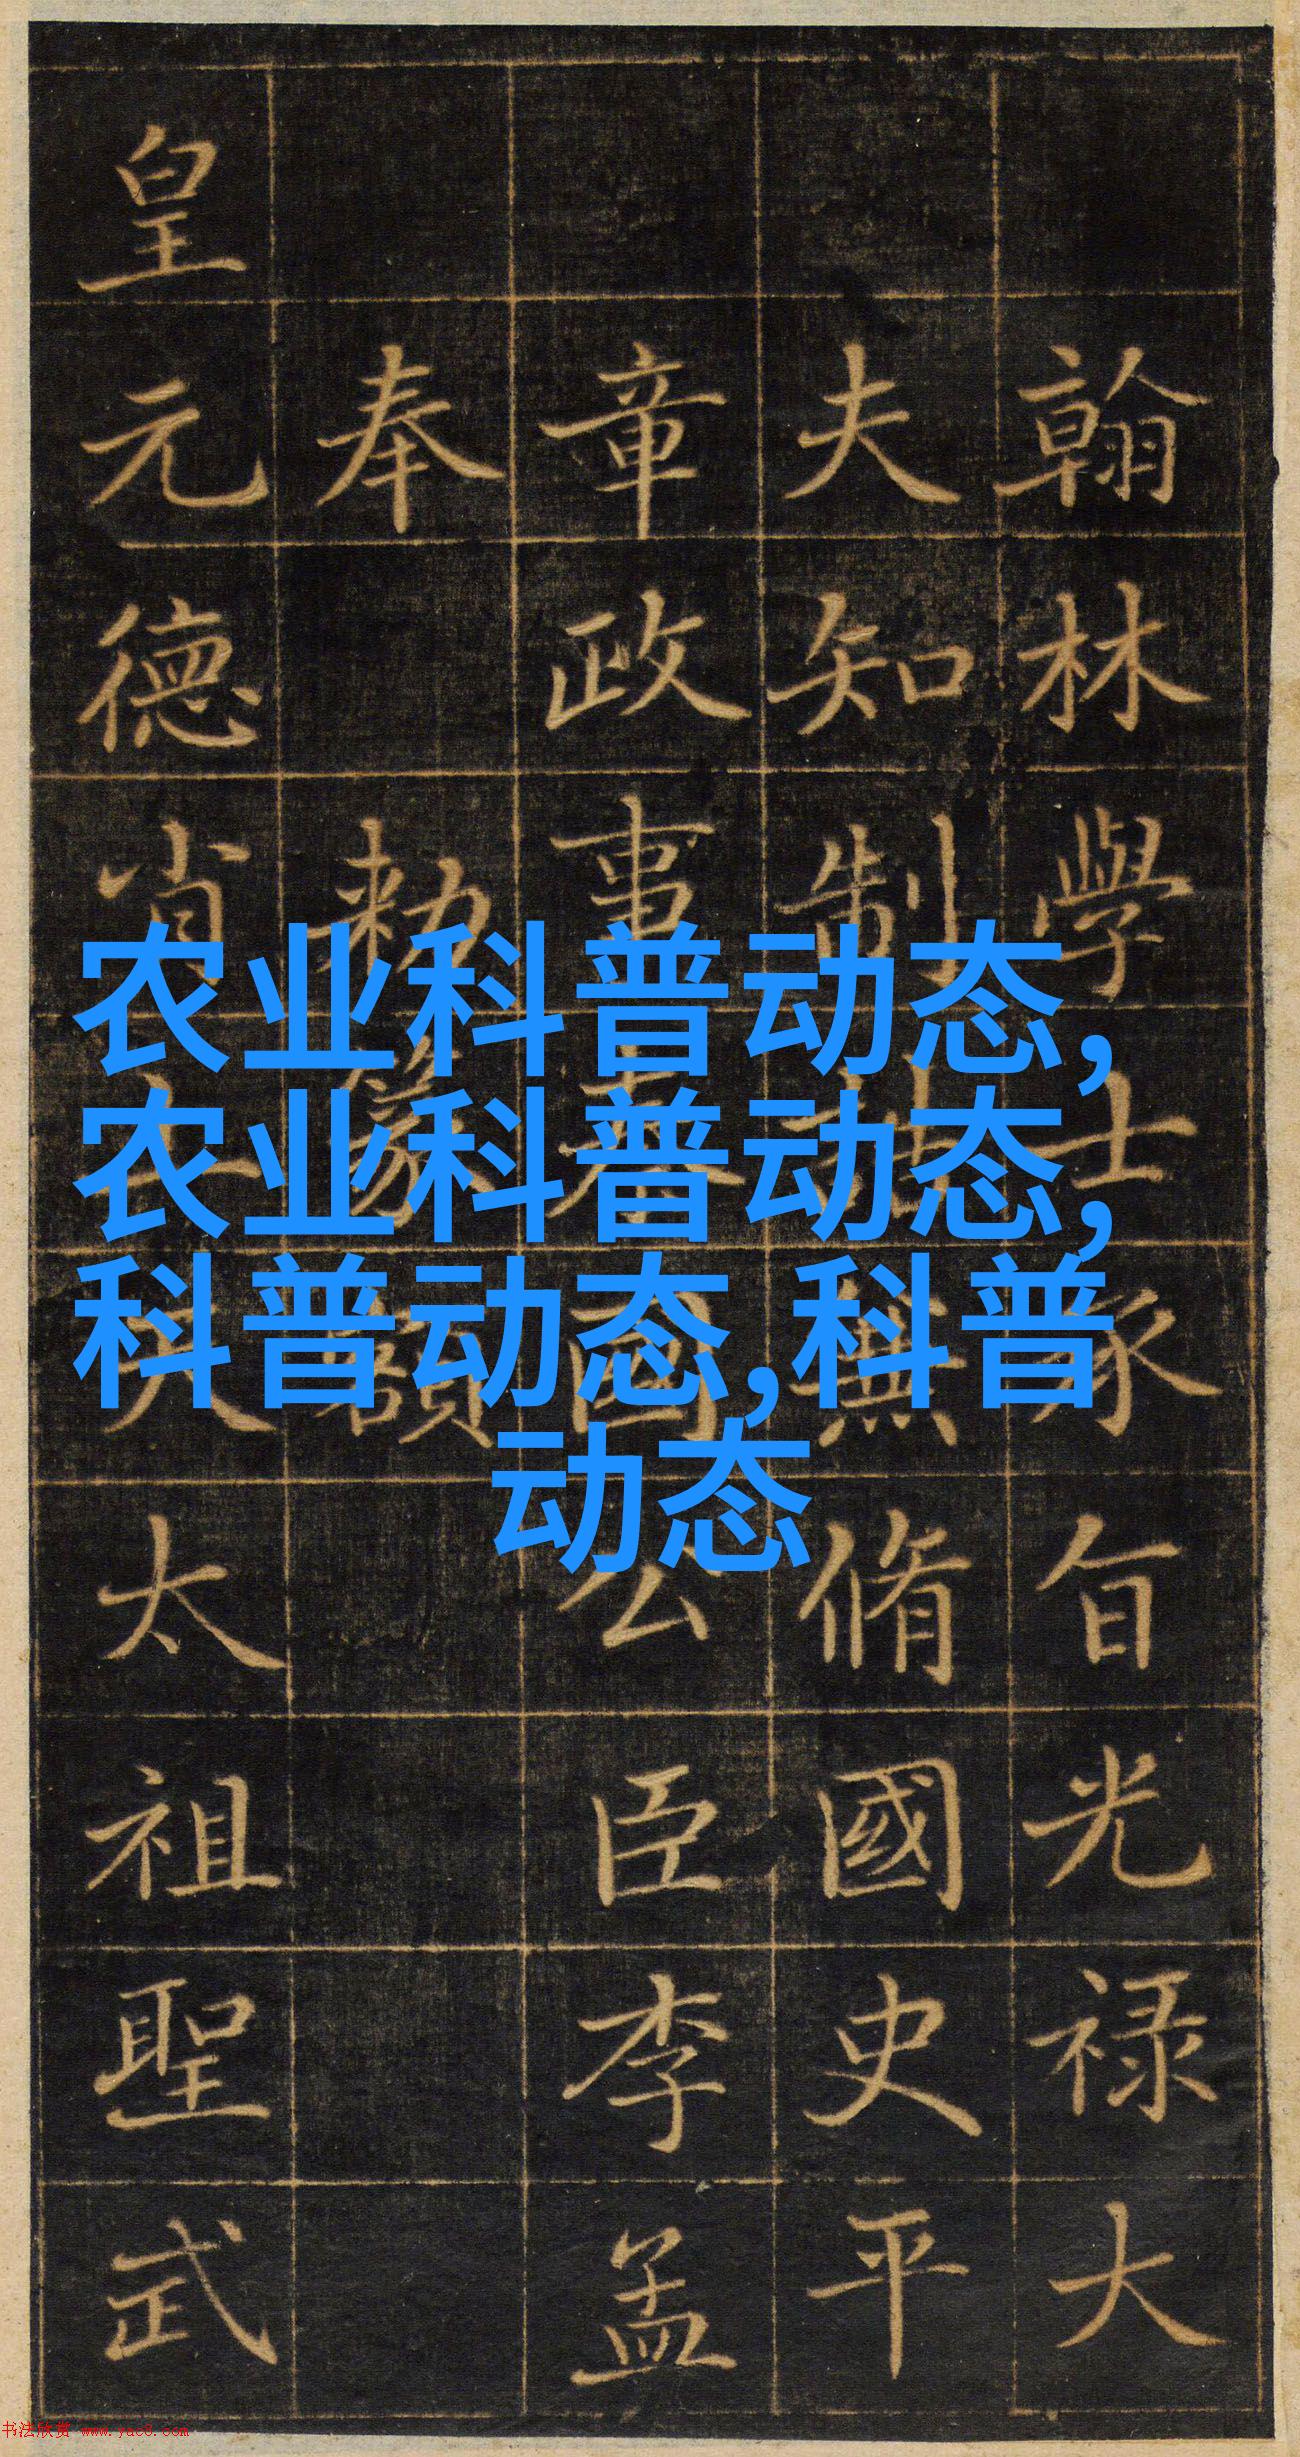 农业科普动态,
农业科普动态,
科普动态,科普
动态
翰林學士承旨光祿大
夫知制誥兼脩國史平
章政事秦國公臣李孟
奉 勑篆額
皇元德肖太祖聖武
书法欣赏 www.yac8.com